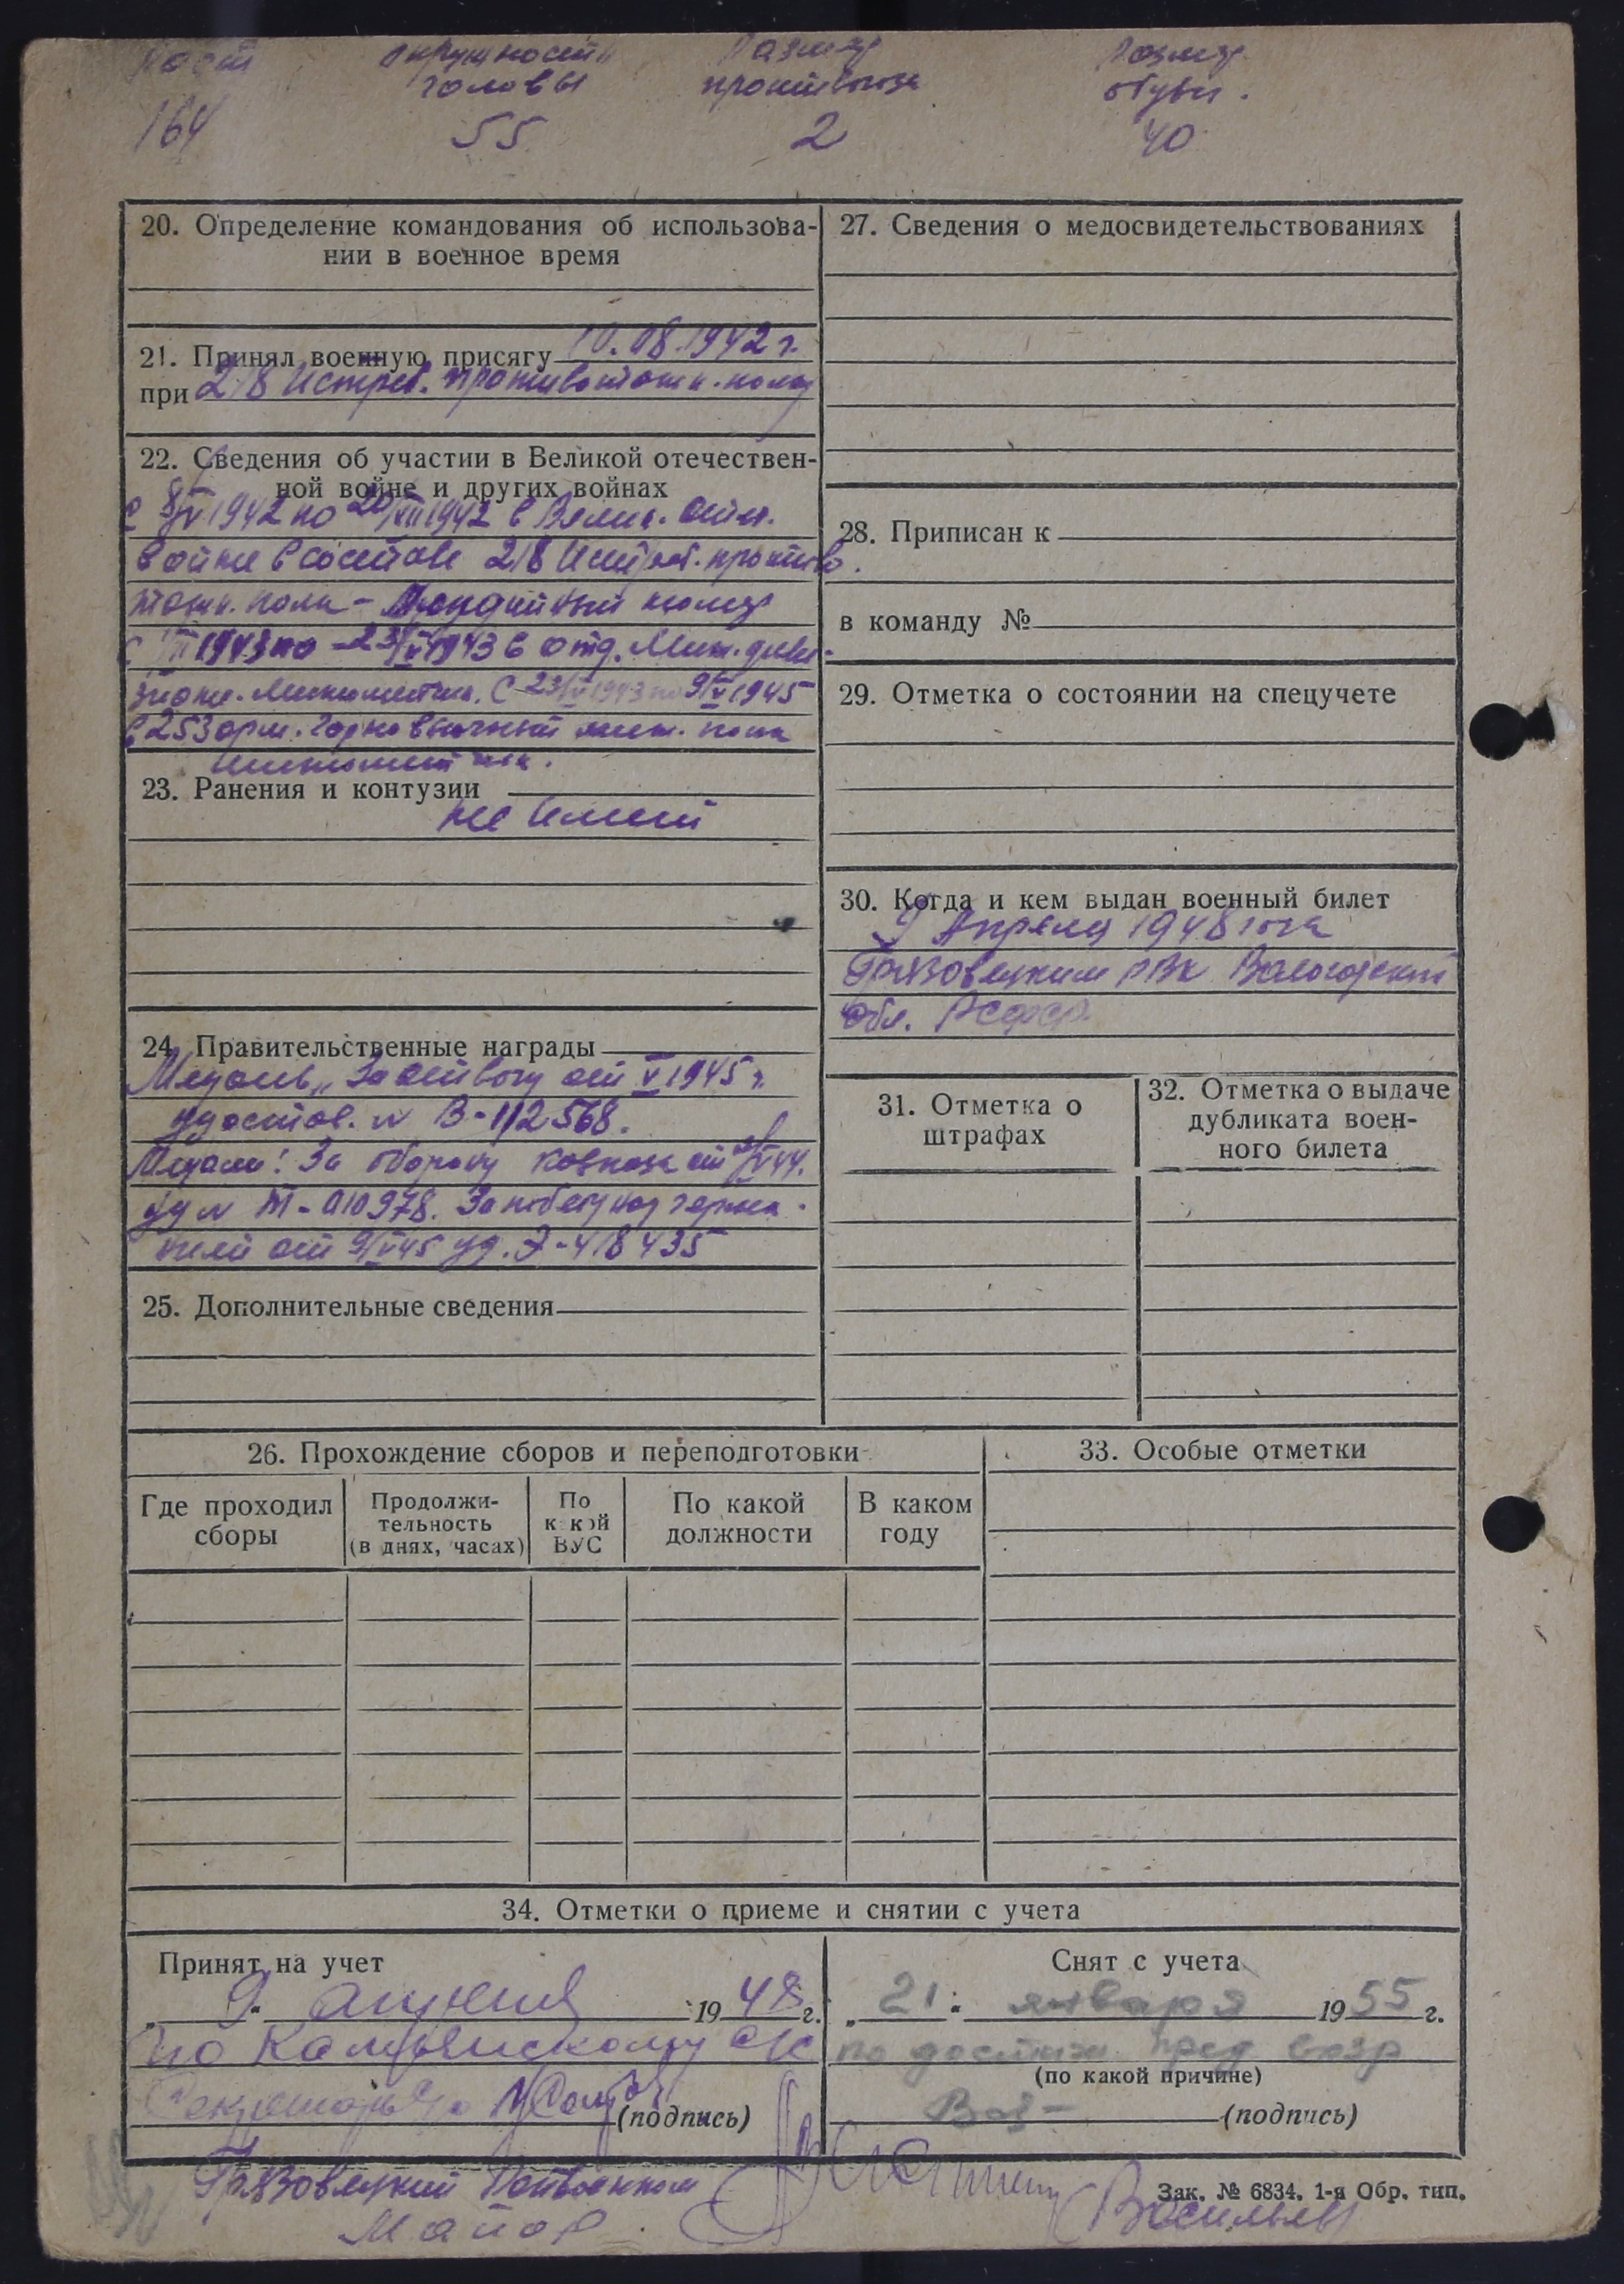 Рост
Окружность
головы
Размер
противогаза
Размер
обуви.
164
55
2
40
20. Определение командования об использова-
нии в военное время
21. Принял военную присягу 10.08.1942 г.
при 218 Истреб. противотанк. полку
22. Сведения об участии в Великой отечествен-
ной войне и других войнах
С 8/V 1942 по 20/VIII 1942 в Велик. отеч.
войне в составе 218 Истреб. противо.
танк. полк - Орудийный номер
1943 по 23/V 1943 в отд. Мин. диви-
зионе. Минометчик. С 23/V 1943 по 9/V 1945
в 253 арм. горно вьючный мин. полк
минометчик.
23. Ранения и контузии
не имеет
24. Правительственные награды
Медаль „За отвагу от V 1945 г.
удостов. № В-112568.
Медаль! За оборону Кавказа от V 44.
уд № М-010978. За победу над герма-
нией от 9/V 45 уд. Э-418435
25. Дополнительные сведения
27. Сведения о медосвидетельствованиях
28. Приписан к
в команду №
29. Отметка о состоянии на спецучете
30. Когда и кем выдан военный билет
9 Апреля 1948 года
Грязовецким РВК Вологодской
обл. РСФСР
31. Отметка о
штрафах
32. Отметка о выдаче
дубликата воен-
ного билета
26. Прохождение сборов и переподготовки
Где проходил
сборы
Продолжи-
тельность
(в днях, часах)
По
какой
ВУС
По какой
должности
В каком
году
33. Особые отметки
34. Отметки о приеме и снятии с учета
Принят на учет
„ 9 " апреля 1948 г.
по с/с
Секретарь с/с
(подпись)
Снят с учета
„ 21 " января 1955 г.
по достиж пред возр
(по какой причине)
(подпись)
Грязовецкий Райвоенком
Майор
Зак. № 6834, 1-я Обр. тип.